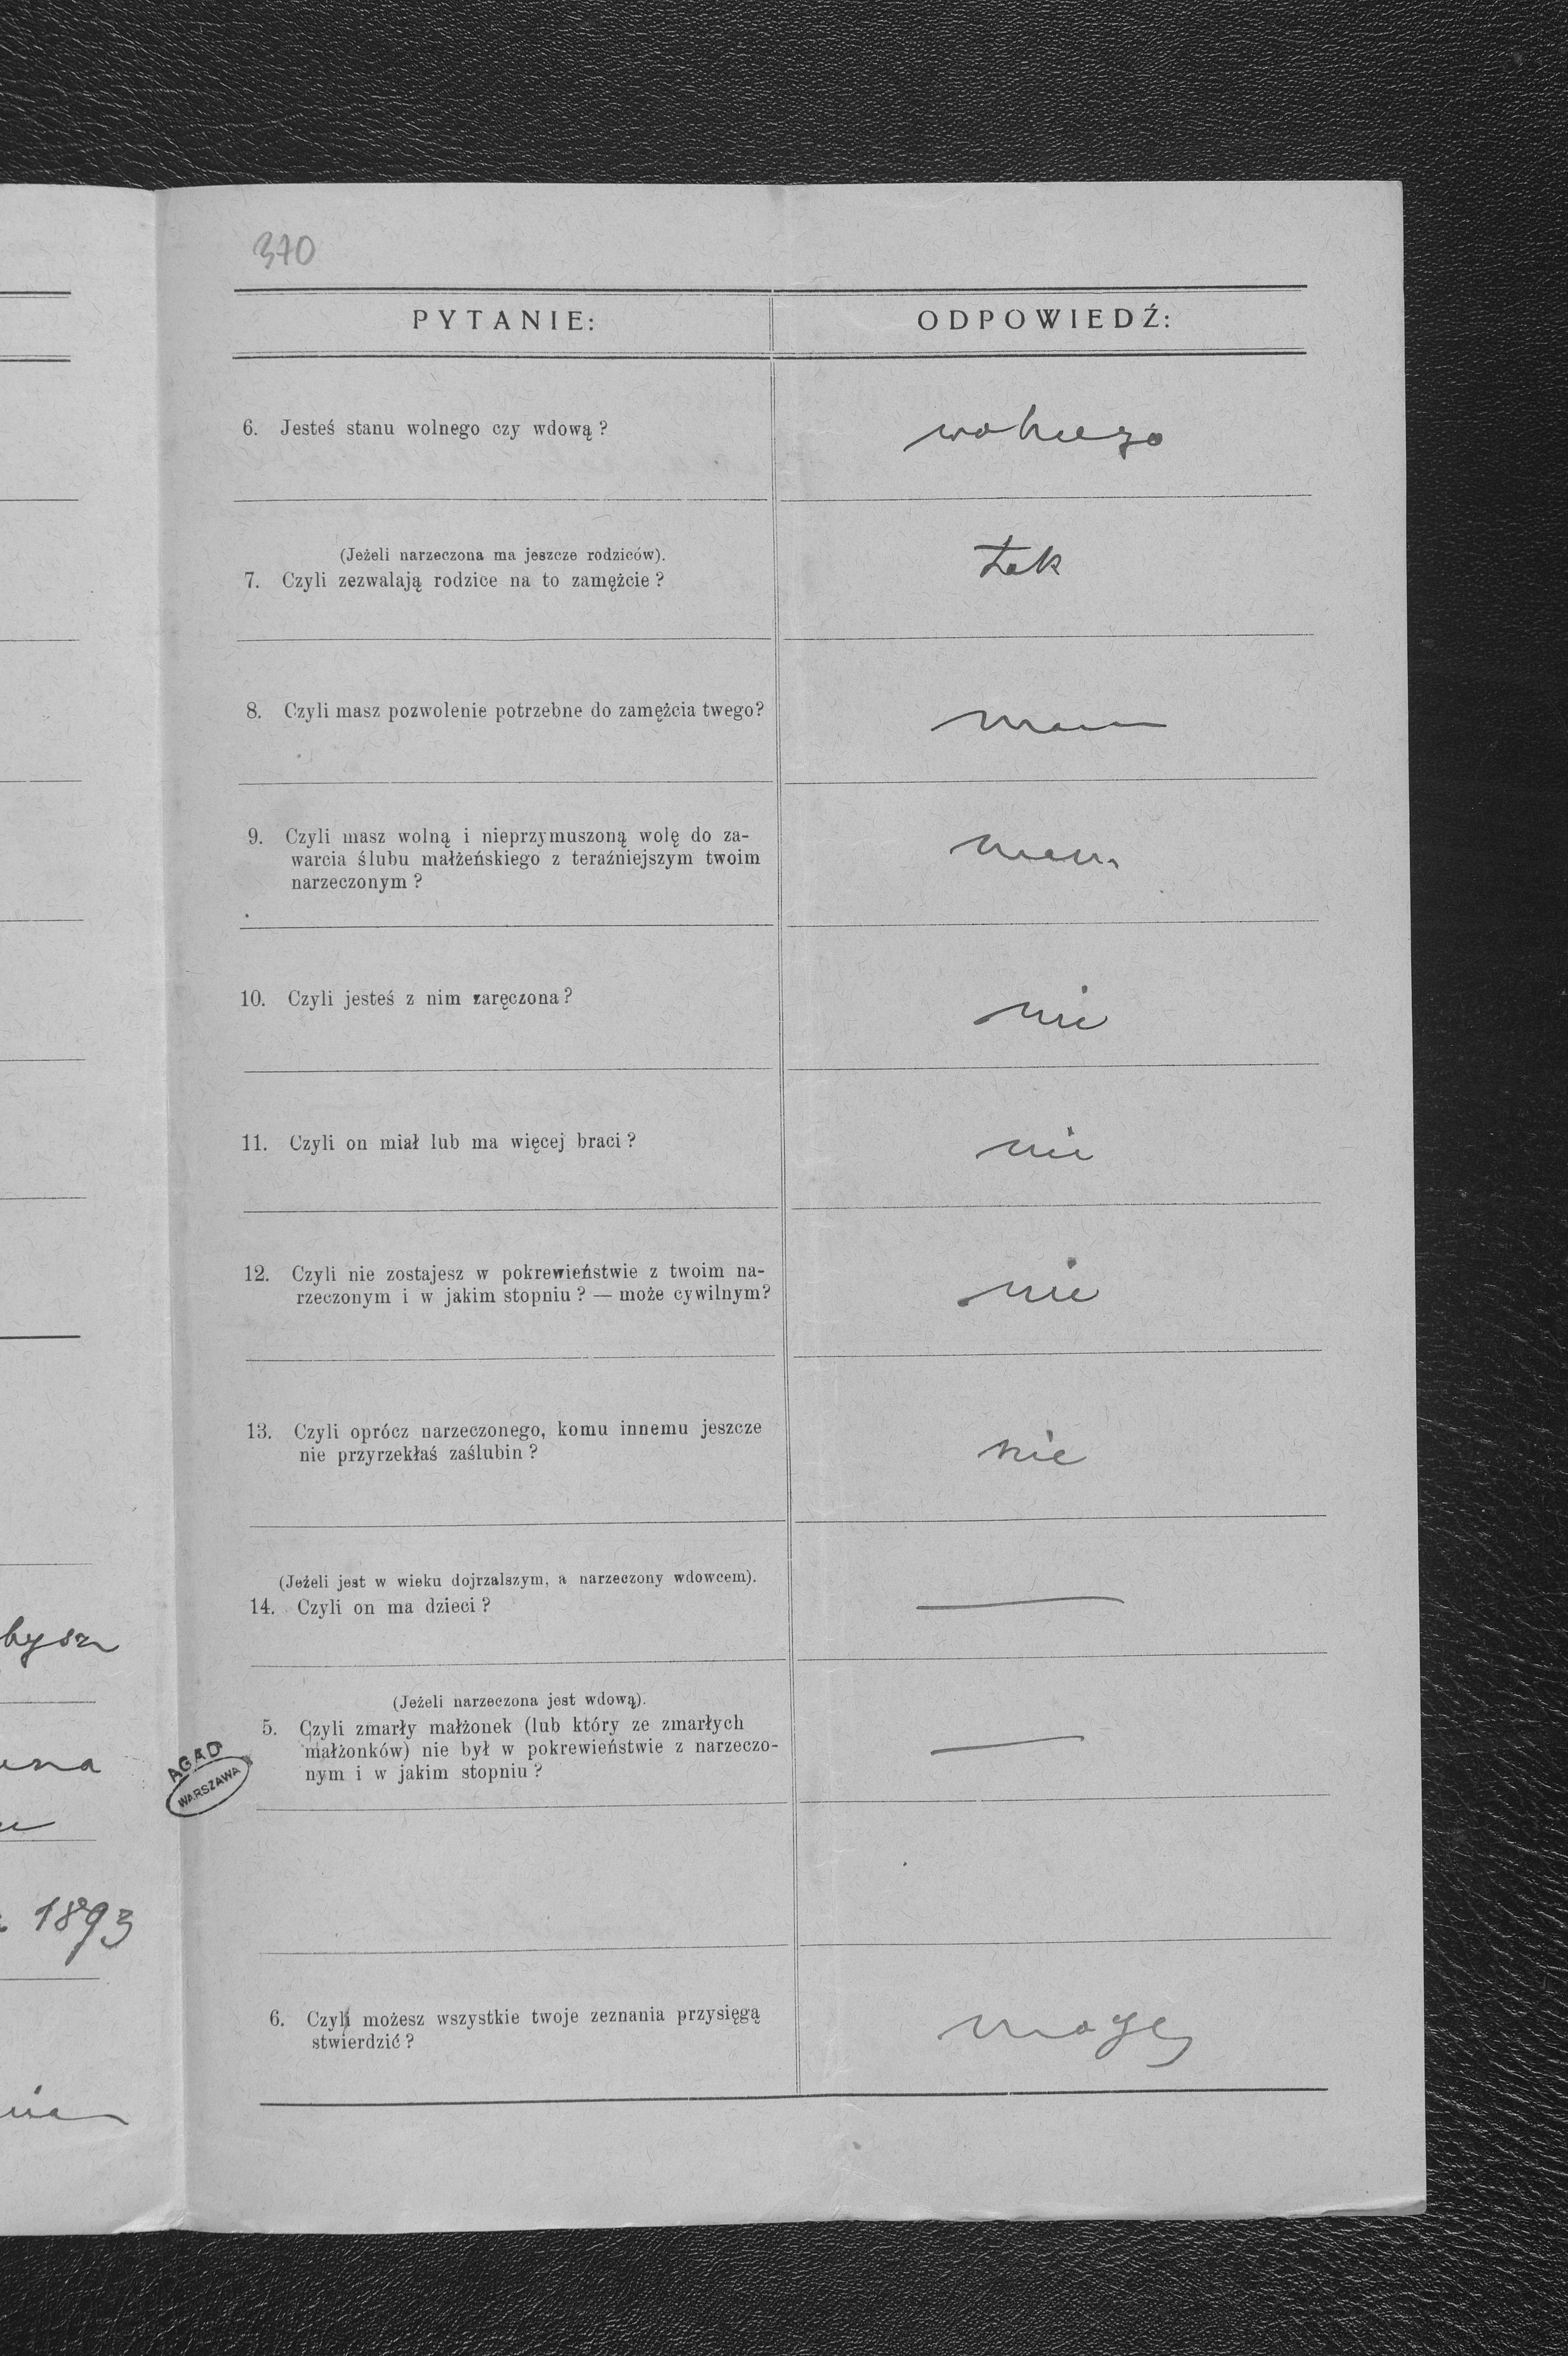 370
PYTANIE: ODPOWIEDŹ:
6. Jesteś stanu wolnego czy wdową? wolnego
(Jeżeli narzeczona ma jeszcze rodziców).
7. Czyli zezwalają rodzice na to zamężcie? tak
8. Czyli masz pozwolenie potrzebne do zamężcia twego? mam
9. Czyli masz wolną i nieprzymuszoną wolę do za-
warcia ślubu małżeńskiego z teraźniejszym twoim
narzeczonym? mam
10. Czyli jesteś z nim zaręczona? nie
11. Czyli on miał lub ma więcej braci? nie
12. Czyli nie zostajesz w pokrewieństwie z twoim na-
rzeczonym i w jakim stopniu? — może cywilnym? nie
13. Czyli oprócz narzeczonego, komu innemu jeszcze
nie przyrzekłaś zaślubin? nie
(Jeżeli jest w wieku dojrzalszym, a narzeczony wdowcem).
14. Czyli on ma dzieci? —
(Jeżeli narzeczona jest wdową).
5. Czyli zmarły małżonek (lub który ze zmarłych
małżonków) nie był w pokrewieństwie z narzeczo-
nym i w jakim stopniu? —
6. Czyli możesz wszystkie twoje zeznania przysięgą
stwierdzić? mogę
AGAD
WARSZAWA
1893